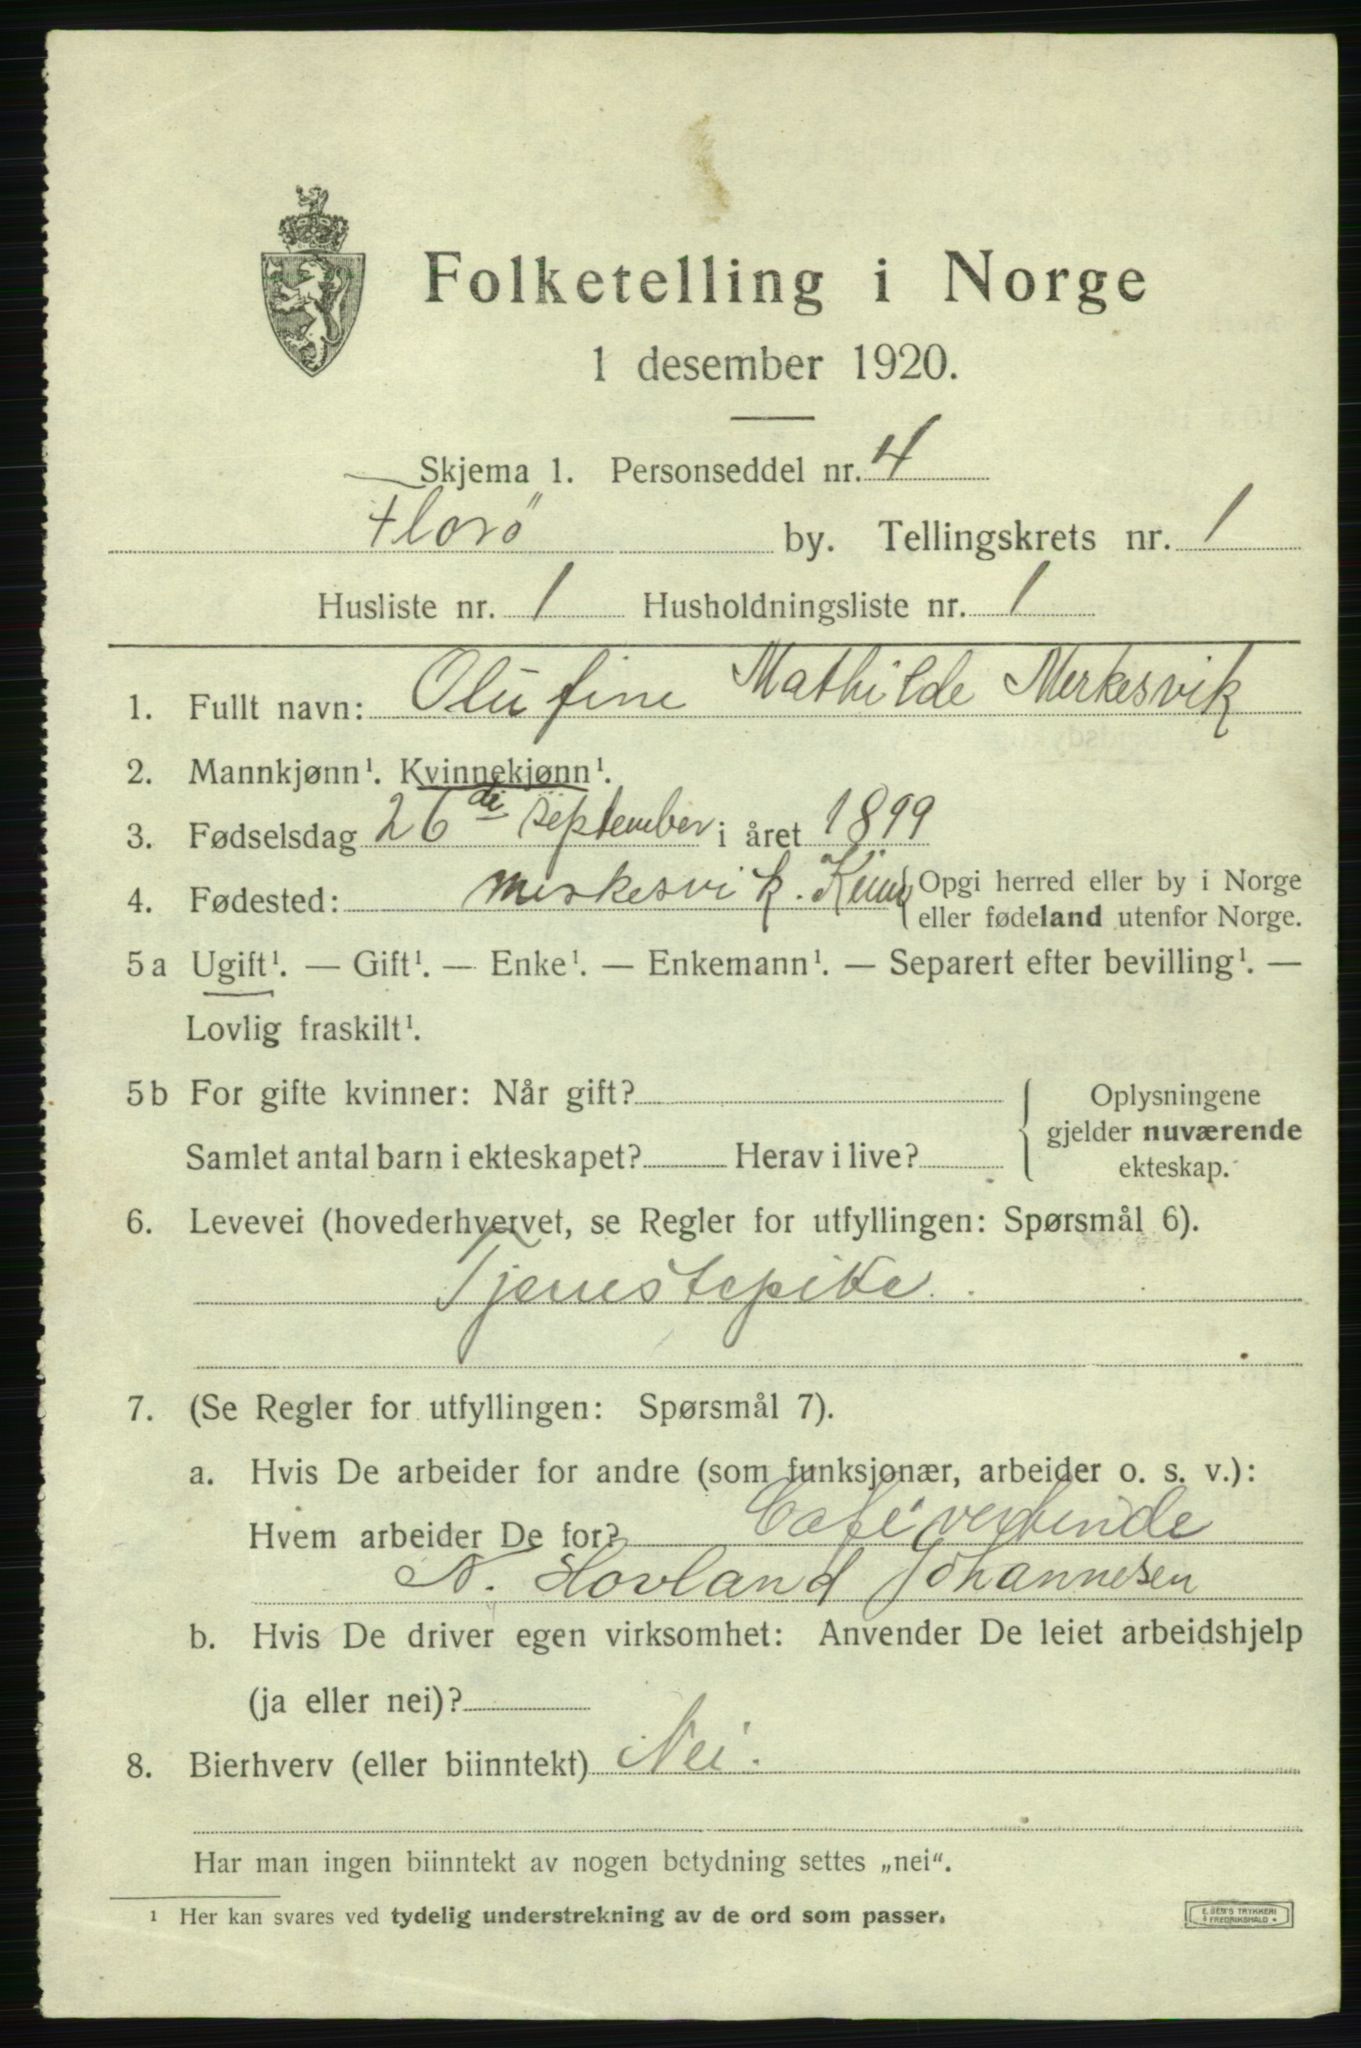 Folketelling i Norge
1 desember 1920.
Skjema 1. Personseddel nr. 4
Florö by. Tellingskrets nr. 1
Husliste nr. 1 Husholdningsliste nr. 1
1. Fullt navn: Olufine Mathilde Merkesvik
2. Mannkjønn¹. Kvinnekjønn¹.
3. Fødselsdag 26de september i året 1899
4. Fødested: Merkesvik. Kinn { Opgi herred eller by i Norge
eller fødeland utenfor Norge.
5a Ugift¹. — Gift¹. — Enke¹. — Enkemann¹. — Separert efter bevilling¹. —
Lovlig fraskilt¹.
5b For gifte kvinner: Når gift? { Oplysningene
gjelder nuværende
Samlet antal barn i ekteskapet? Herav i live? ekteskap.
6. Levevei (hovederhvervet, se Regler for utfyllingen: Spørsmål 6).
Tjenestepike.
7. (Se Regler for utfyllingen: Spørsmål 7).
a. Hvis De arbeider for andre (som funksjonær, arbeider o. s. v.):
Hvem arbeider De for? Cafévertinde
N. Hovland Johannesen
b. Hvis De driver egen virksomhet: Anvender De leiet arbeidshjelp
(ja eller nei)?
8. Bierhverv (eller biinntekt) Nei.
Har man ingen biinntekt av nogen betydning settes „nei“.
¹ Her kan svares ved tydelig understrekning av de ord som passer.
E. SEM'S TRYKKERI
FREDRIKSHALD